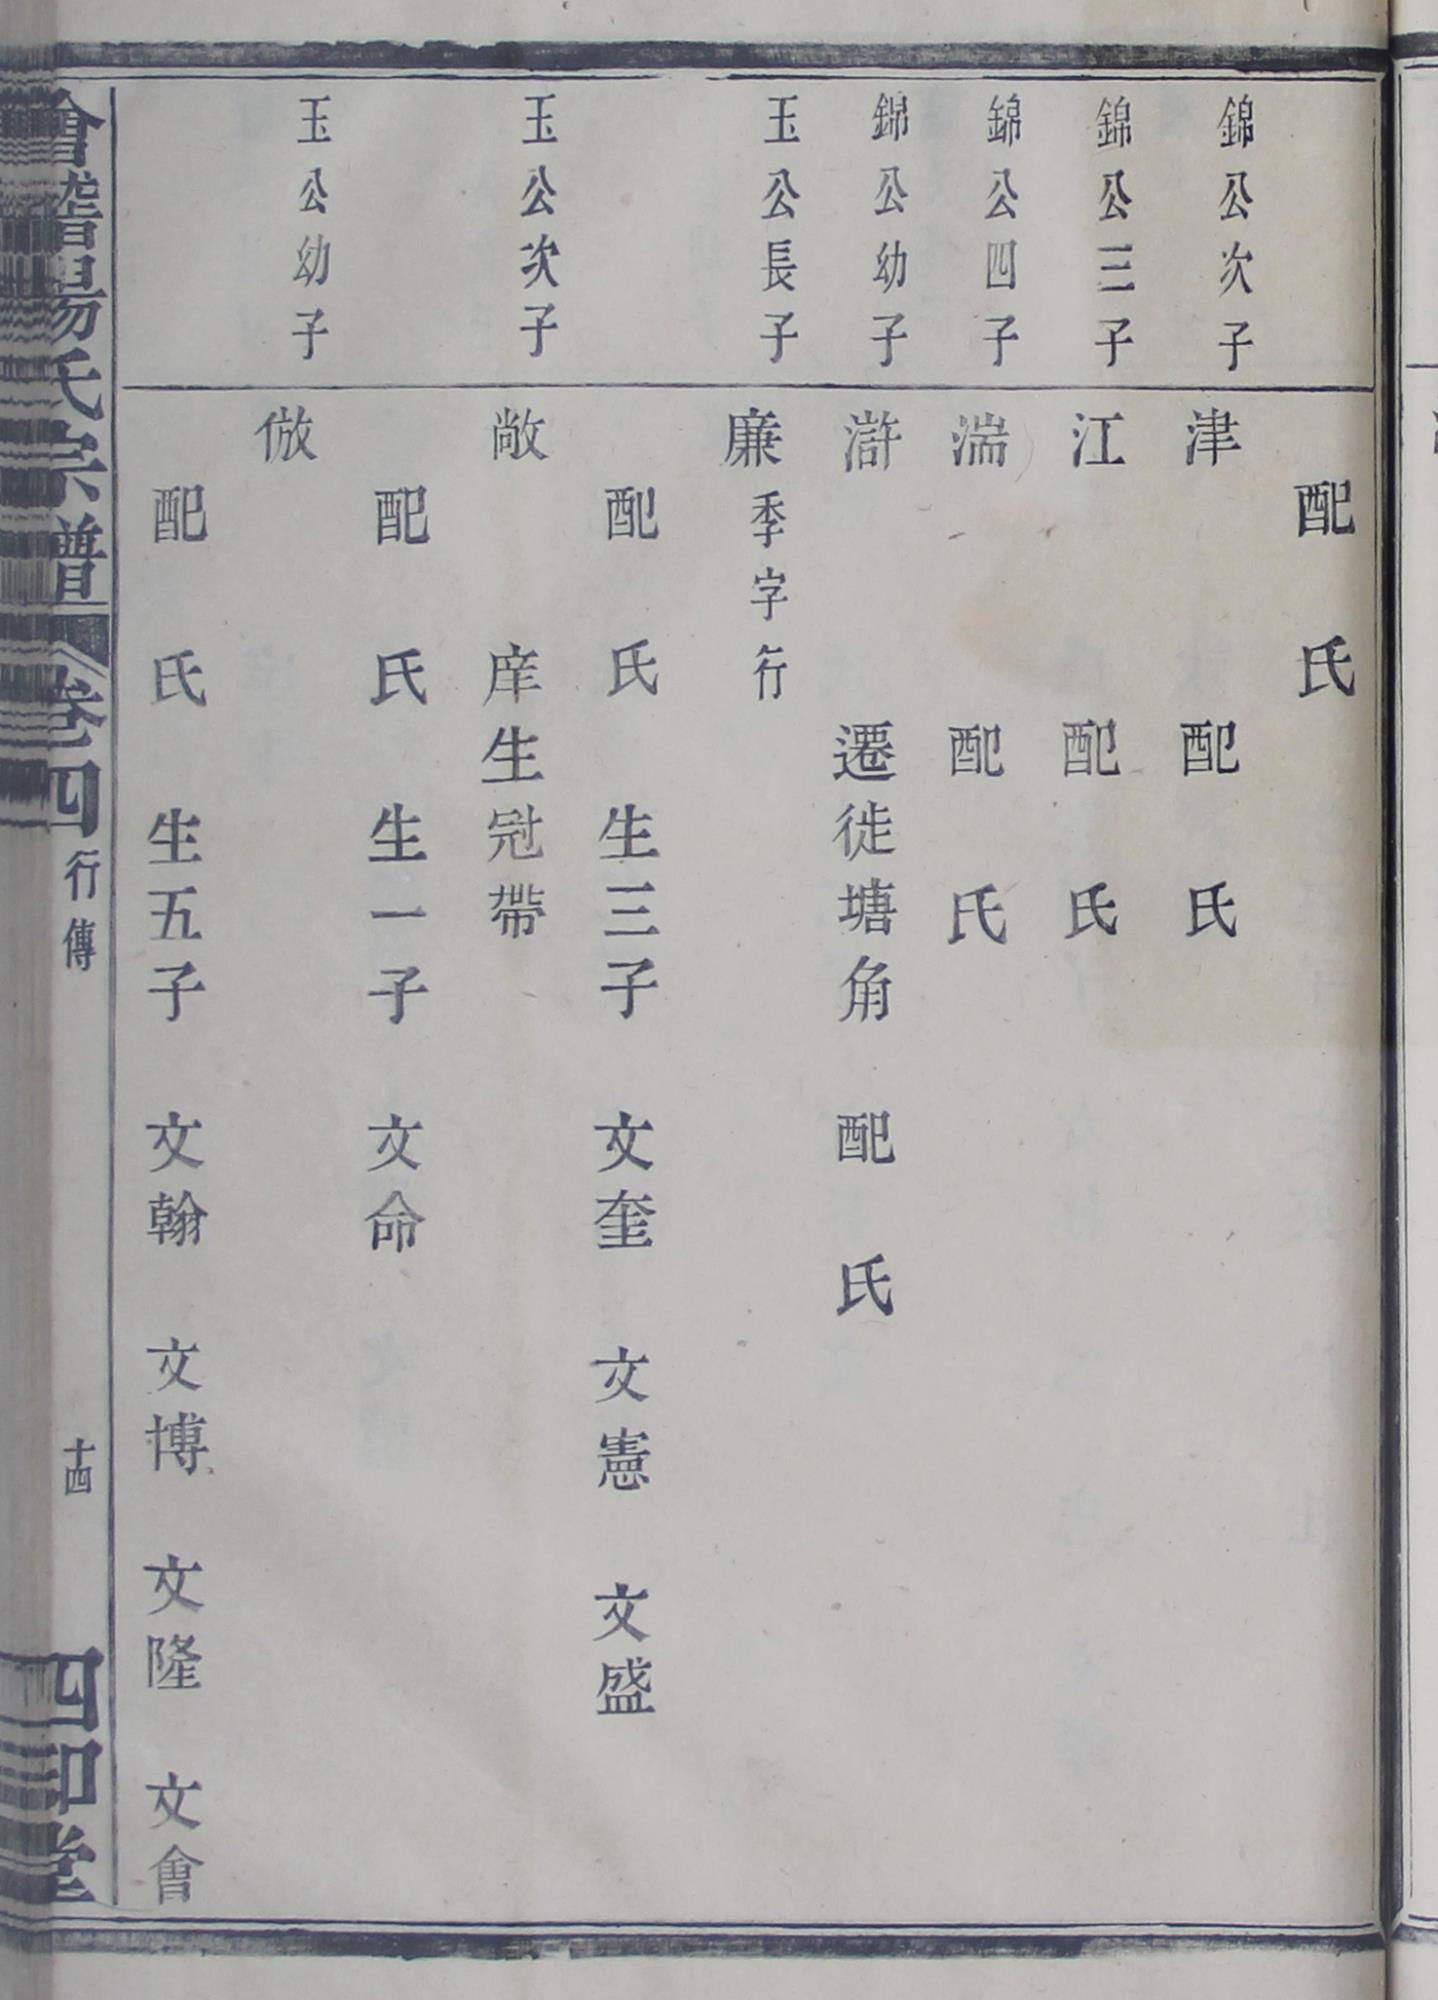 配　氏
錦公次子　津　配　氏
錦公三子　江　配　氏
錦公四子　湍　配　氏
錦公幼子　滸　遷徙塘角　配　氏
玉公長子　廉　季字行
配　氏　生三子　文奎　文憲　文盛
玉公次子　敞　庠生冠帶
配　氏　生一子　文命
玉公幼子　倣
配　氏　生五子　文翰　文博　文隆　文會
會稽楊氏宗譜　卷四　行傳　十四　四印堂